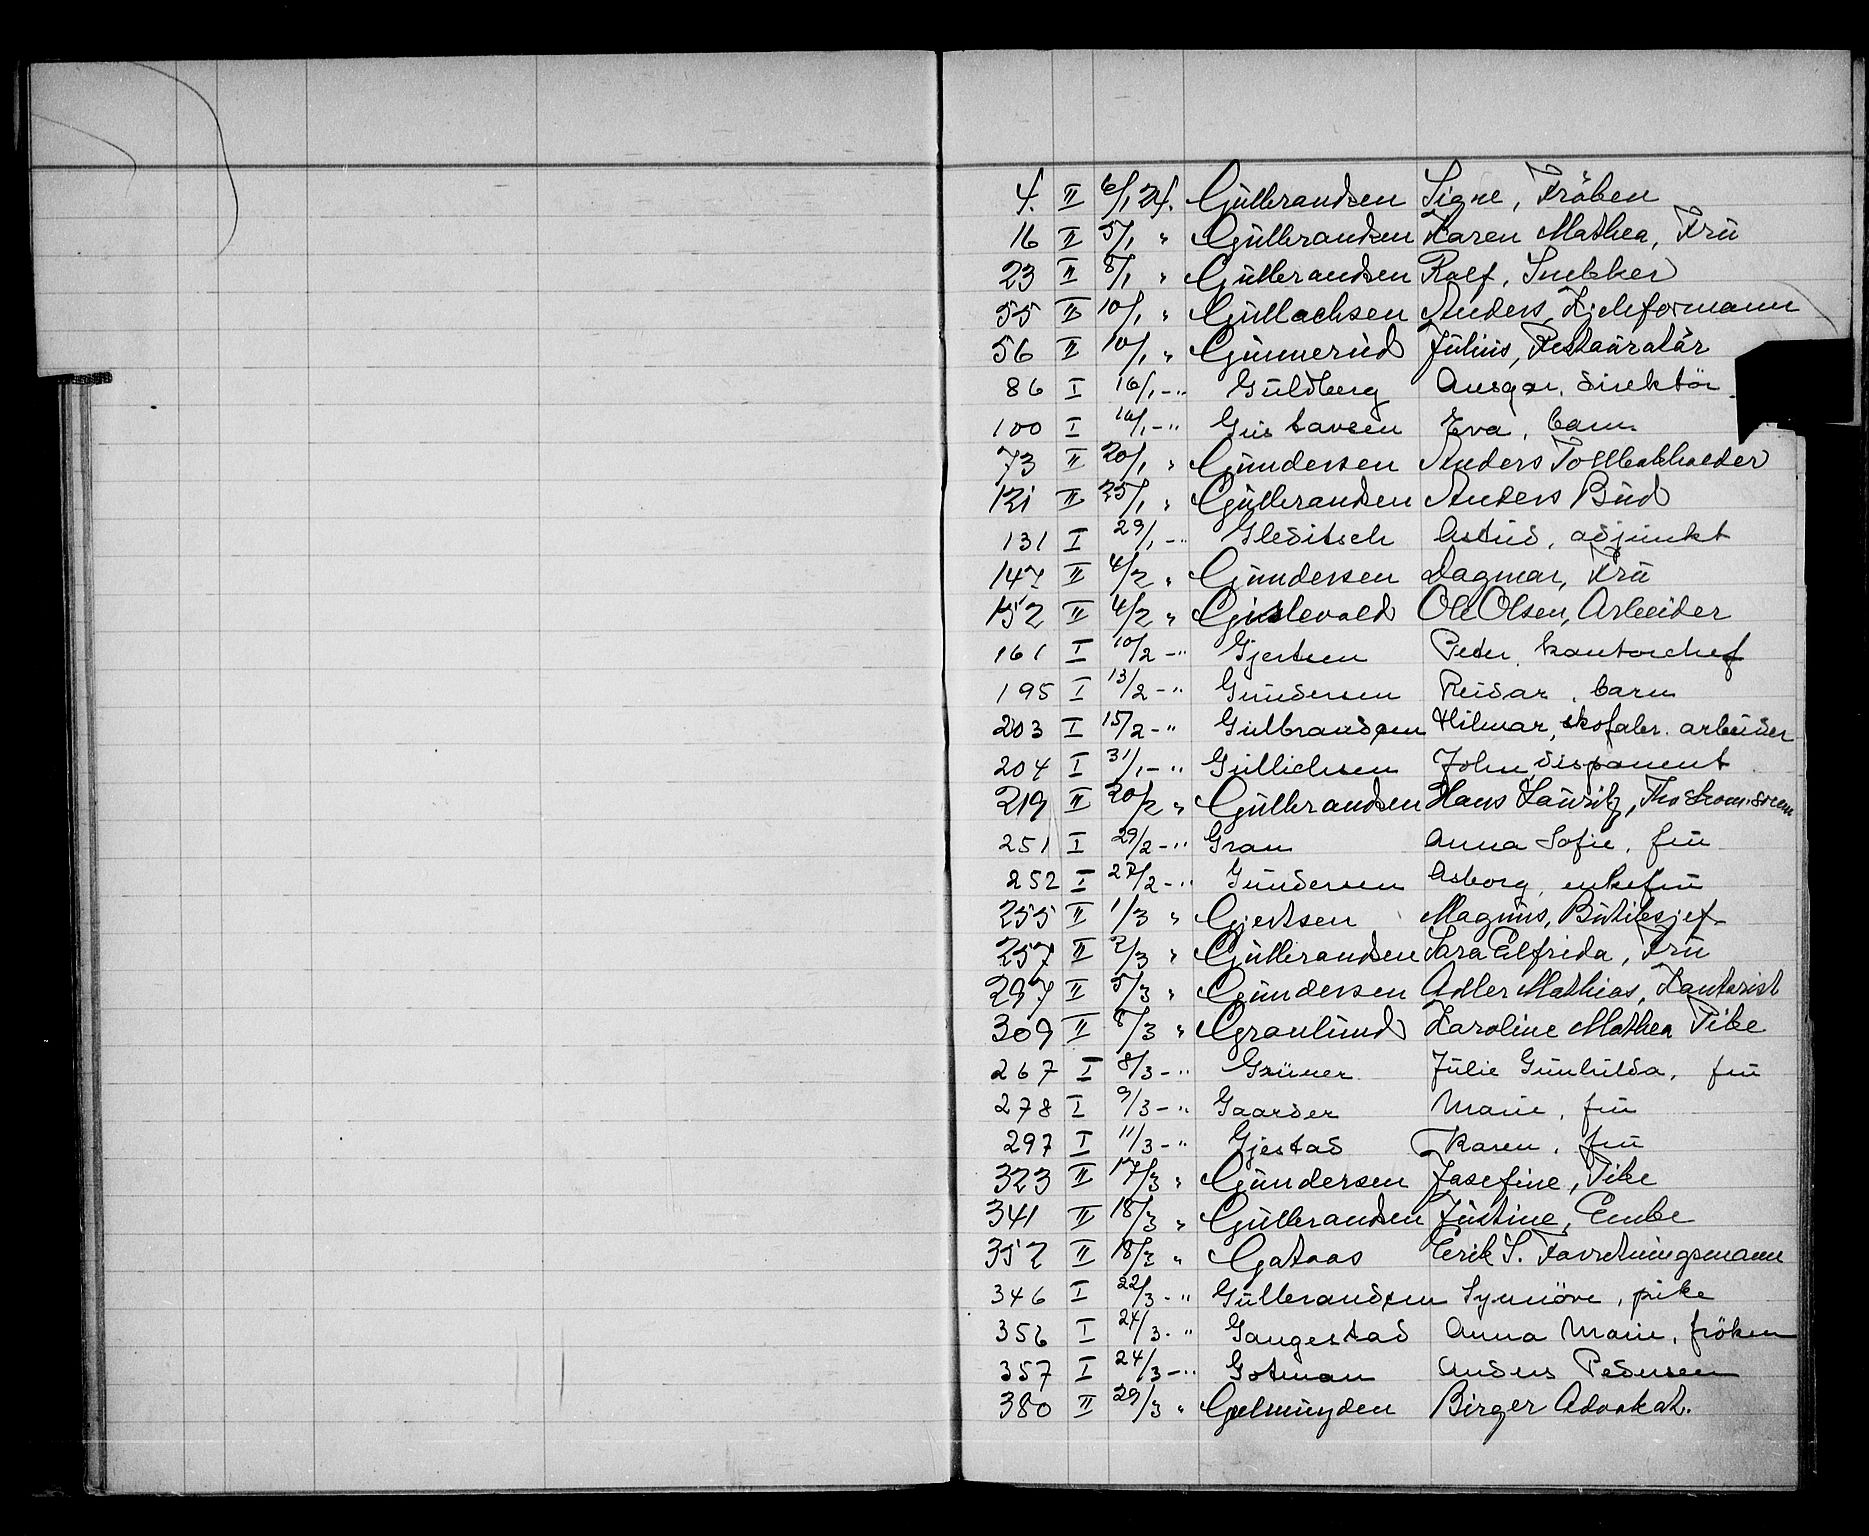 4. II 6/1 24. Gulbrandsen Signe, Fröken
16 II 5/1 " Gulbrandsen Karen Mathea, Fru
23 II 8/1 " Gulbrandsen Rolf, Snekker
55 II 10/1 " Gullachsen Anders,
56 II 10/1 " Gunnerud Julius, Restauratör
86 I 16/1 -" Guldberg Ansgar, direktör
100 I 16/1 -" Gustavsen Eva, barn
73 II 20/1 " Gundersen Anders Tollbokholder
121 II 25/1 " Gulbrandsen Anders Bud
131 I 29/1 -" Gleditsch Astrid, adjunkt
147 II 4/2 " Gundersen Dagmar, Fru
152 II 4/2 " Gislevold Ole Olsen, Arbeider
161 I 10/2 -" Gjertsen Peder, kontorchef
195 I 13/2 -" Gundersen Reidar, barn
203 I 15/2 -" Gulbrandsen Hilmar, skofabr. arbeider
204 I 31/1 -" Gullichsen John, disponent
219 II 20/2 " Gulbrandsen Hans Lauritz,
251 I 29/2 -" Gran Anna Sofie, fru
252 I 27/2 -" Gundersen Asborg, enkefru
255 II 1/3 " Gjertsen Magnus, Butiksjef
257 II 2/3 " Gulbrandsen Sara Elfrida, Fru
297 II 5/3 " Gundersen Adler Mathias, Kontorist
309 II 8/3 " Granlund Karoline Mathea Pike
267 I 8/3 -" Grüner Julie Gunhilda, fru
278 I 9/3 -" Gaarder Marie, fru
297 I 11/3 -" Gjestad Karen, fru
323 II 17/3 " Gundersen Josefine, Pike
341 II 18/3 " Gulbrandsen Justine, Enke
352 II 18/3 " Gataas Erik S. Forretningsmann
346 I 22/3 -" Gulbrandsen Synnöve, pike
356 I 24/3 -" Gangestad Anna Marie, fröken
357 I 24/3 -" Gotman Anders Pedersen
380 II 29/3 " Gjelmuyden Birger Advokat.